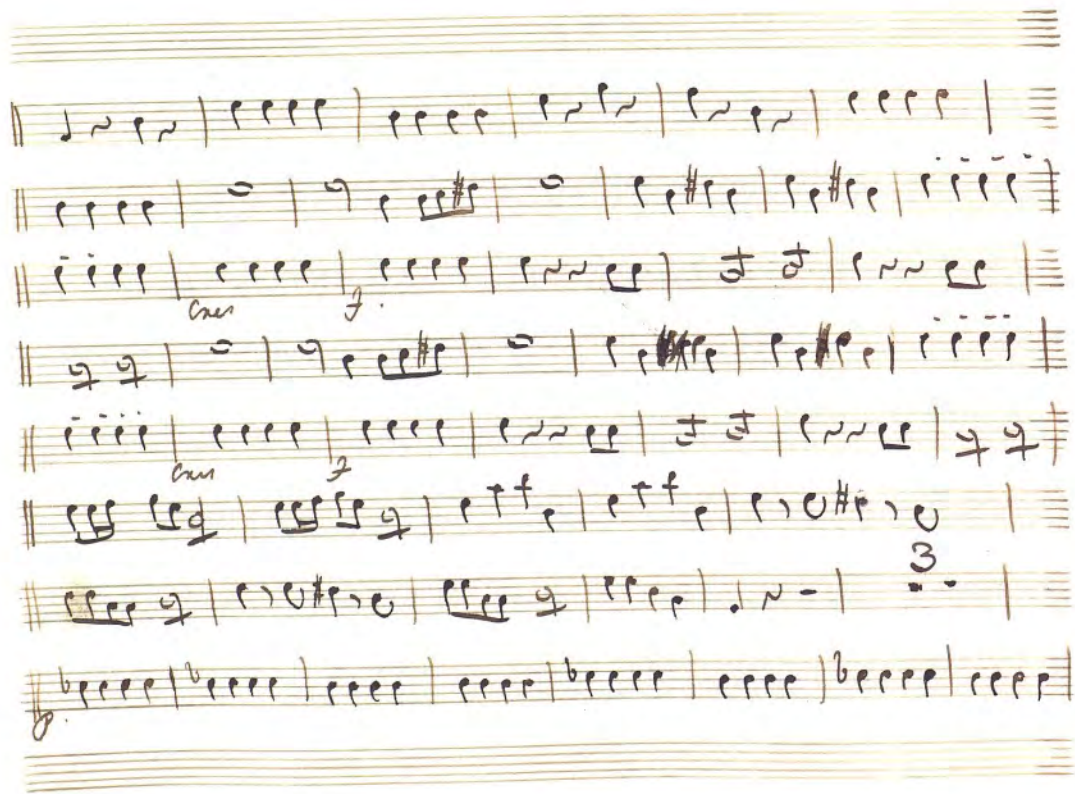 Cres F.
Cres F
3
p.